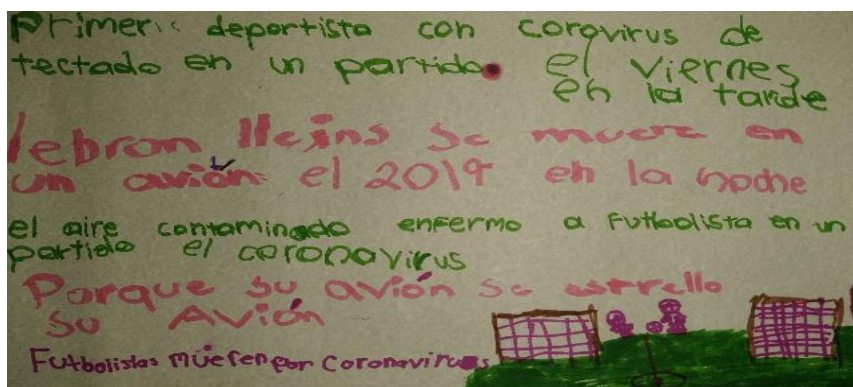 Primer deportista con coravirus de
tectado en un partido el viernes
en la tarde
lebron lleins se muere en
un avión el 2019 en la noche
el aire contaminado enfermo a futbolista en un
partido el coronavirus
Porque su avión se estrello
su Avión
Futbolistas mueren por Coronavirus